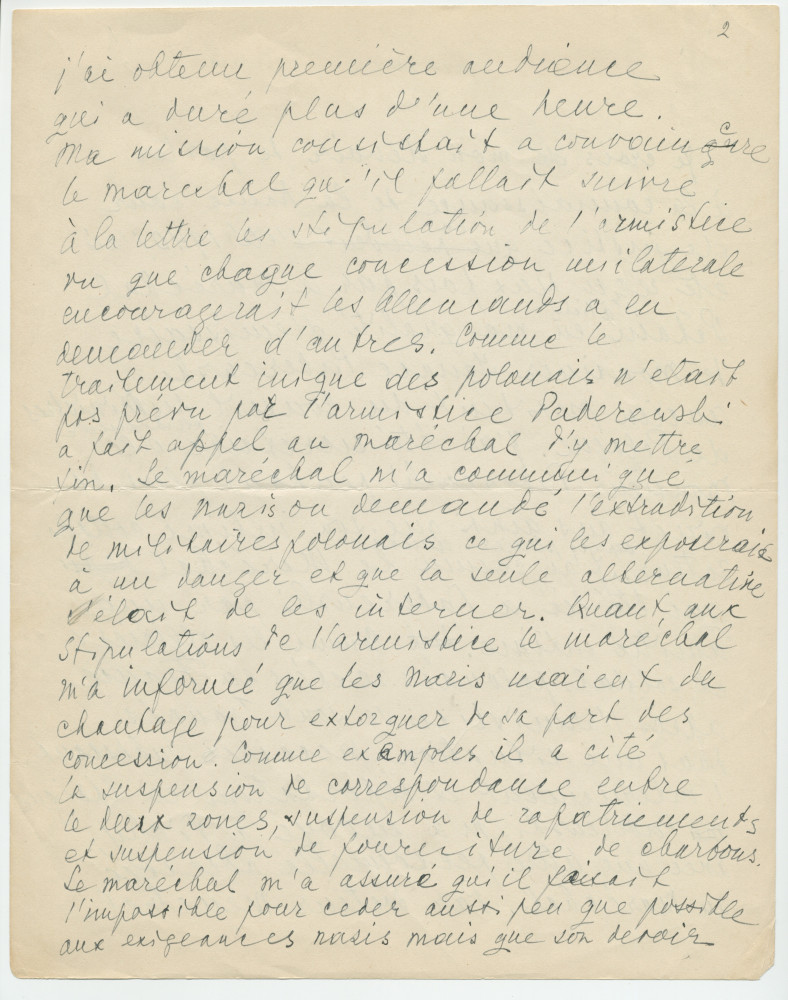 2
j'ai obtenu première audience
qui a duré plus d'une heure.
Ma mission consistait a convaincre
le marechal qu'il fallait suivre
à la lettre les stipulation de l'armistice
vu que chaque concession unilaterale
encouragerait les Allemands a en
demander d'autres. Comme le
traitement inique des polonais n'etait
pas prévu par l'armistice Paderewski
a fait appel au maréchal d'y mettre
fin. Le maréchal m'a communiqué
que les nazis on demandé l'extradition
de militaires polonais ce qui les exposerais
à un danger et que la seule alternative
était de les interner. Quant aux
stipulations de l'armistice le maréchal
m'a informé que les nazis usaient du
chantage pour extorquer de sa part des
concession. Comme examples il a cité
la suspension de correspondance entre
le deux zones, suspension de rapatriements
et suspension de fourniture de charbons.
Le maréchal m'a assuré qu'il faisait
l'impossible pour ceder aussi peu que possible
aux exigeances nasis mais que son devoir